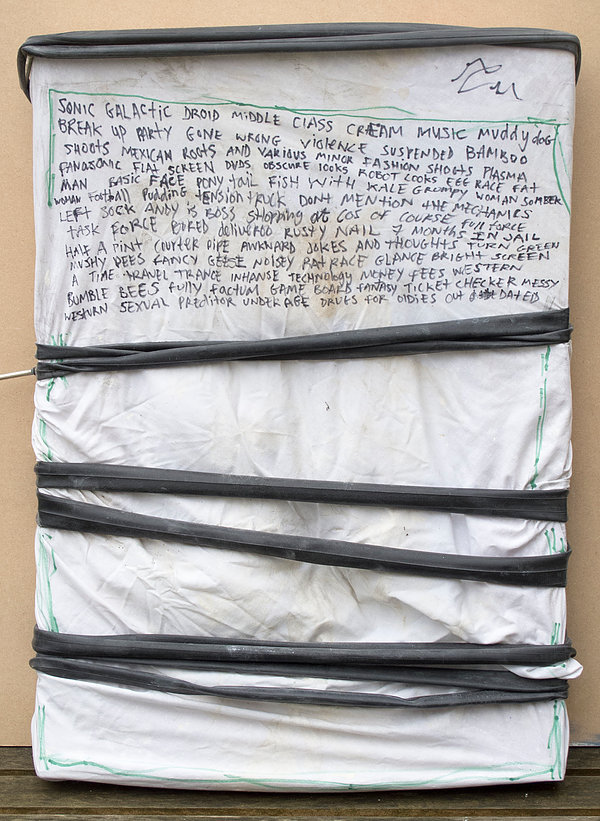 SONIC GALACTIC DROID MIDDLE CLASS CREAM MUSIC MUDDY dog
BREAK UP PARTY GONE WRONG VIOLENCE SUSPENDED BAMBOO
SHOOTS MEXICAN ROOTS AND VARIOUS MINOR FASHION SHOOTS PLASMA
PANASONIC FLAT SCREEN DVDS OBSCURE LOOKS ROBOT LOOKS EGG RACE FAT
MAN BASIC FACE PONY tail FISH WITH KALE GRUMPY WOMAN SOMBER
WOMAN FOOTBALL PUDDING TENSION TRUCK DONT MENTION THE MECHANICS
LEFT SOCK ANDY is BOSS Shopping at COS OF COURSE FULL FORCE
TASK FORCE BORED deliveroo RUSTY NAIL 7 MONTHS IN JAIL
HALF A PINT COUNTER PIPE AWKWARD JOKES AND THOUGHTS TURN GREEN
MUSHY PEES FANCY GEESE NOISEY RAT RACE GLANCE BRIGHT SCREEN
A TIME TRAVEL TRANCE INHANSE TECHNOLOGY MONEY FEES WESTERN
BUMBLE BEES fully FACTUM GAME BOARD FANTASY TICKET CHECKER MESSY
WESTURN SEXUAL PREDITOR UNDERAGE DRUGS FOR OLDIES OUT DATED